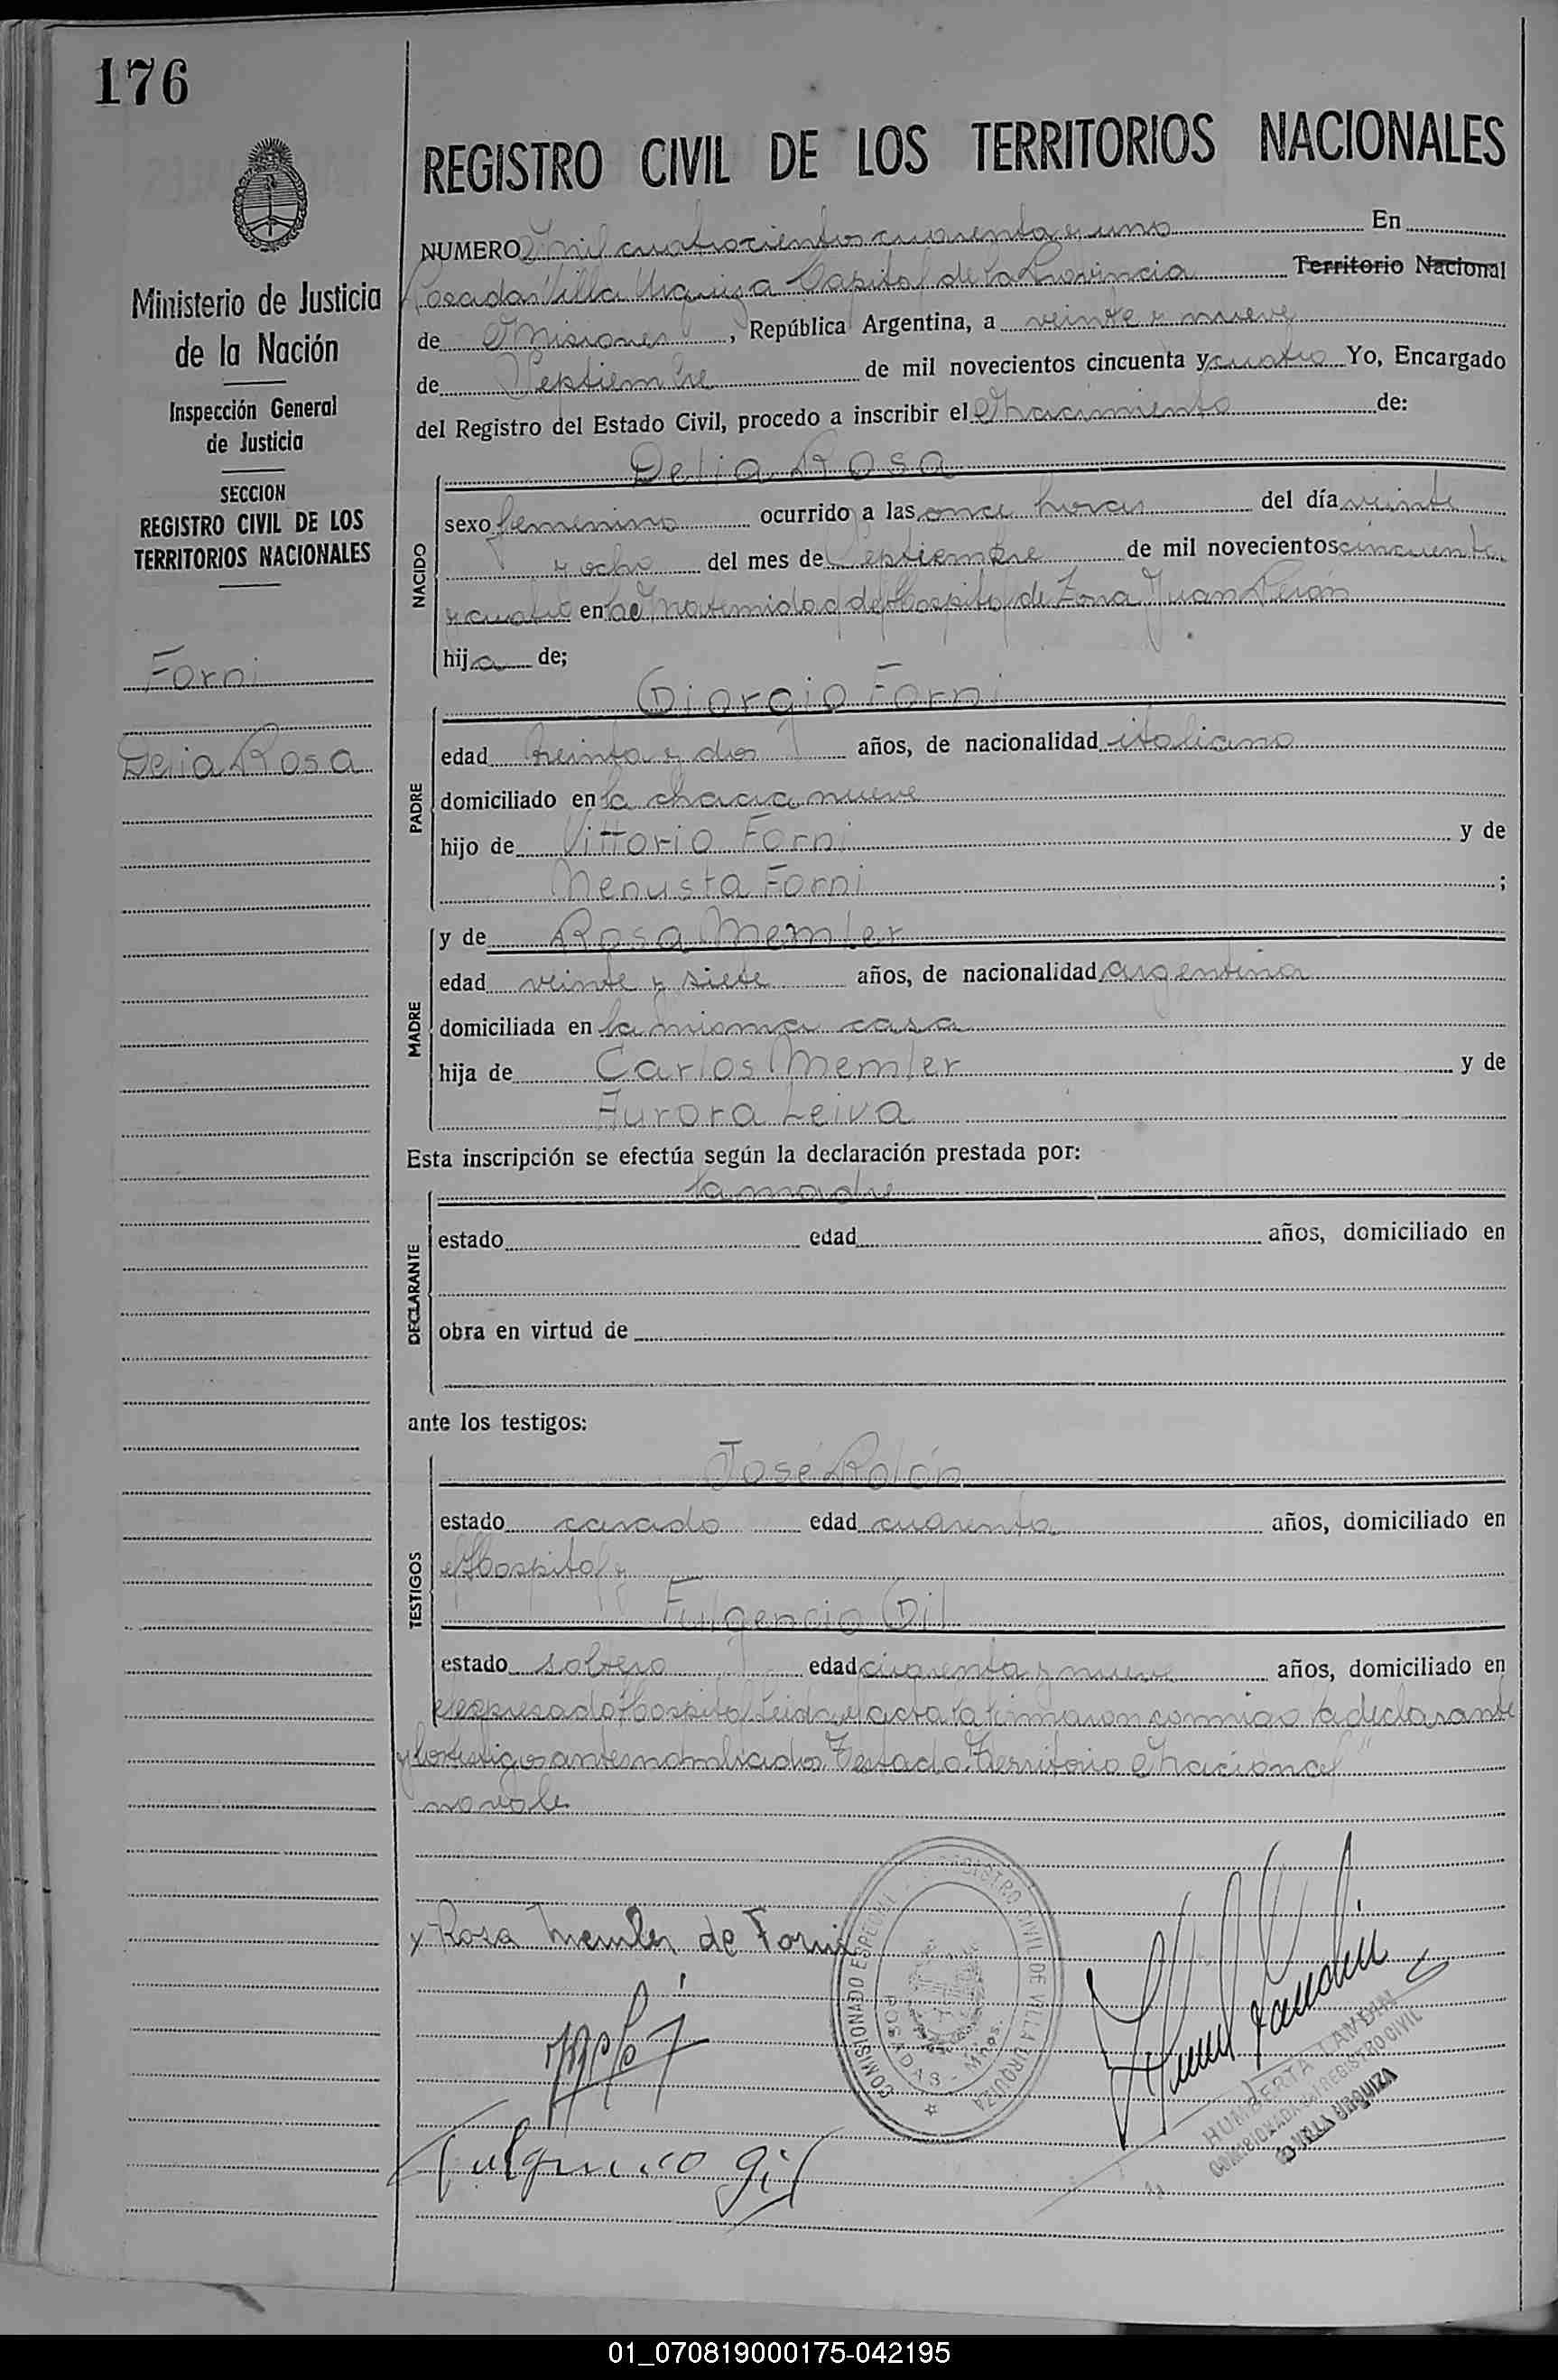 176
Ministerio de Justicia
de la Nación
Inspección General
de Justicia
SECCION
REGISTRO CIVIL DE LOS
TERRITORIOS NACIONALES
Forni
Delia Rosa
REGISTRO CIVIL DE LOS TERRITORIOS NACIONALES
NUMERO mil cuatrocientos cuarenta y uno En
Posadas Villa Urquiza Capital de la Provincia Territorio Nacional
de Misiones, República Argentina, a veinte y nueve
de Septiembre de mil novecientos cincuenta y cuatro Yo, Encargado
del Registro del Estado Civil, procedo a inscribir el Nacimiento de:
Delia Rosa
NACIDO
sexo femenino ocurrido a las once horas del día veinte
y ocho del mes de Septiembre de mil novecientos cincuenta
y cuatro en la Maternidad del Hospital de Zona Juan Perón
hija de;
Giorgio Forni
PADRE
edad treinta y dos años, de nacionalidad italiano
domiciliado en la chacra nueve
hijo de Vittorio Forni y de
Menusta Forni;
MADRE
y de Rosa Memler
edad veinte y siete años, de nacionalidad argentina
domiciliada en la misma casa
hija de Carlos Memler y de
Aurora Leiva
Esta inscripción se efectúa según la declaración prestada por:
la madre
DECLARANTE
estado edad años, domiciliado en
obra en virtud de
ante los testigos:
José Rolón
TESTIGOS
estado casado edad cuarenta años, domiciliado en
el Hospital y
Fulgencio Gil
estado soltero edad cincuenta y nueve años, domiciliado en
el expresado Hospital. Leida el acta la firmaron conmigo la declarante
y los testigos antes nombrados. Testado: "Territorio Nacional"
no vale
x Rosa Memler de Forni
Fulgencio Gil
COMISIONADO ESPECIAL REGISTRO CIVIL DE VILLA URQUIZA
POSADAS - Mnes.
HUMBERTA LANDIN
COMISIONADA REGISTRO CIVIL
VILLA URQUIZA
01_070819000175-042195